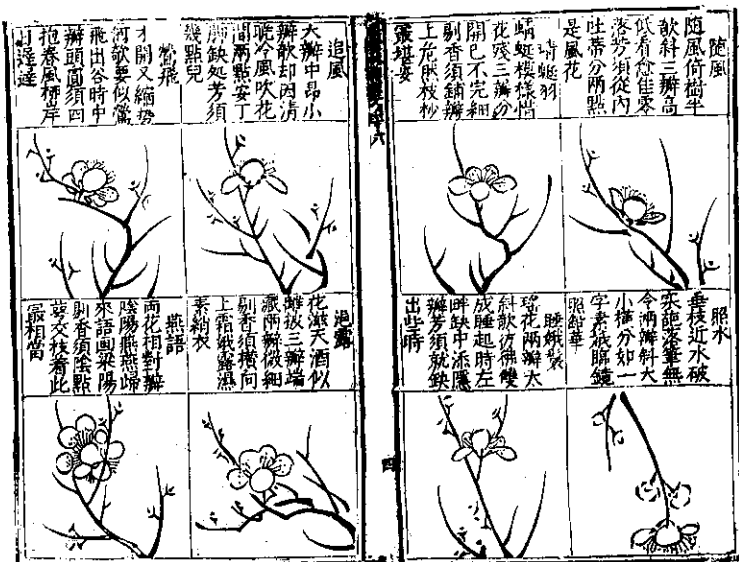 隨風
隨風倚樹半
欹斜三瓣高
低看愈佳零
落芳須從內
吐蒂分兩點
是風花
蜻蜓羽
蜻蜓模樣惜
花殘三瓣分
開已不完細
剔香須鋪瓣
上危然枝杪
最堪安
照水
垂枝近水破
朱施落筆無
令兩瓣斜大
小橫分如一
字素祇臨鏡
照鉛華
睡蛾
瑤花兩瓣太
斜欹彷彿雙
成睡起時左
畔缺中添隱
瓣芳須就缺
出些時
四
追風
大瓣中昂小
瓣欹却因清
曉冷風吹花
間兩點安丁
缺処芳須
幾點兒
鶯飛
才開又縮勢
何欹要似鶯
飛出谷時中
瓣頭圓須四
抱春風栖岸
日遲遲
浥露
花滋天酒似
離披三瓣端
嚴兩瓣微細
剔香須橫向
上霜娥露濕
素綃衣
燕語
兩花相對瓣
陰陽燕燕歸
來語畫梁陽
剔香須陰點
萼交枝看此
最相當